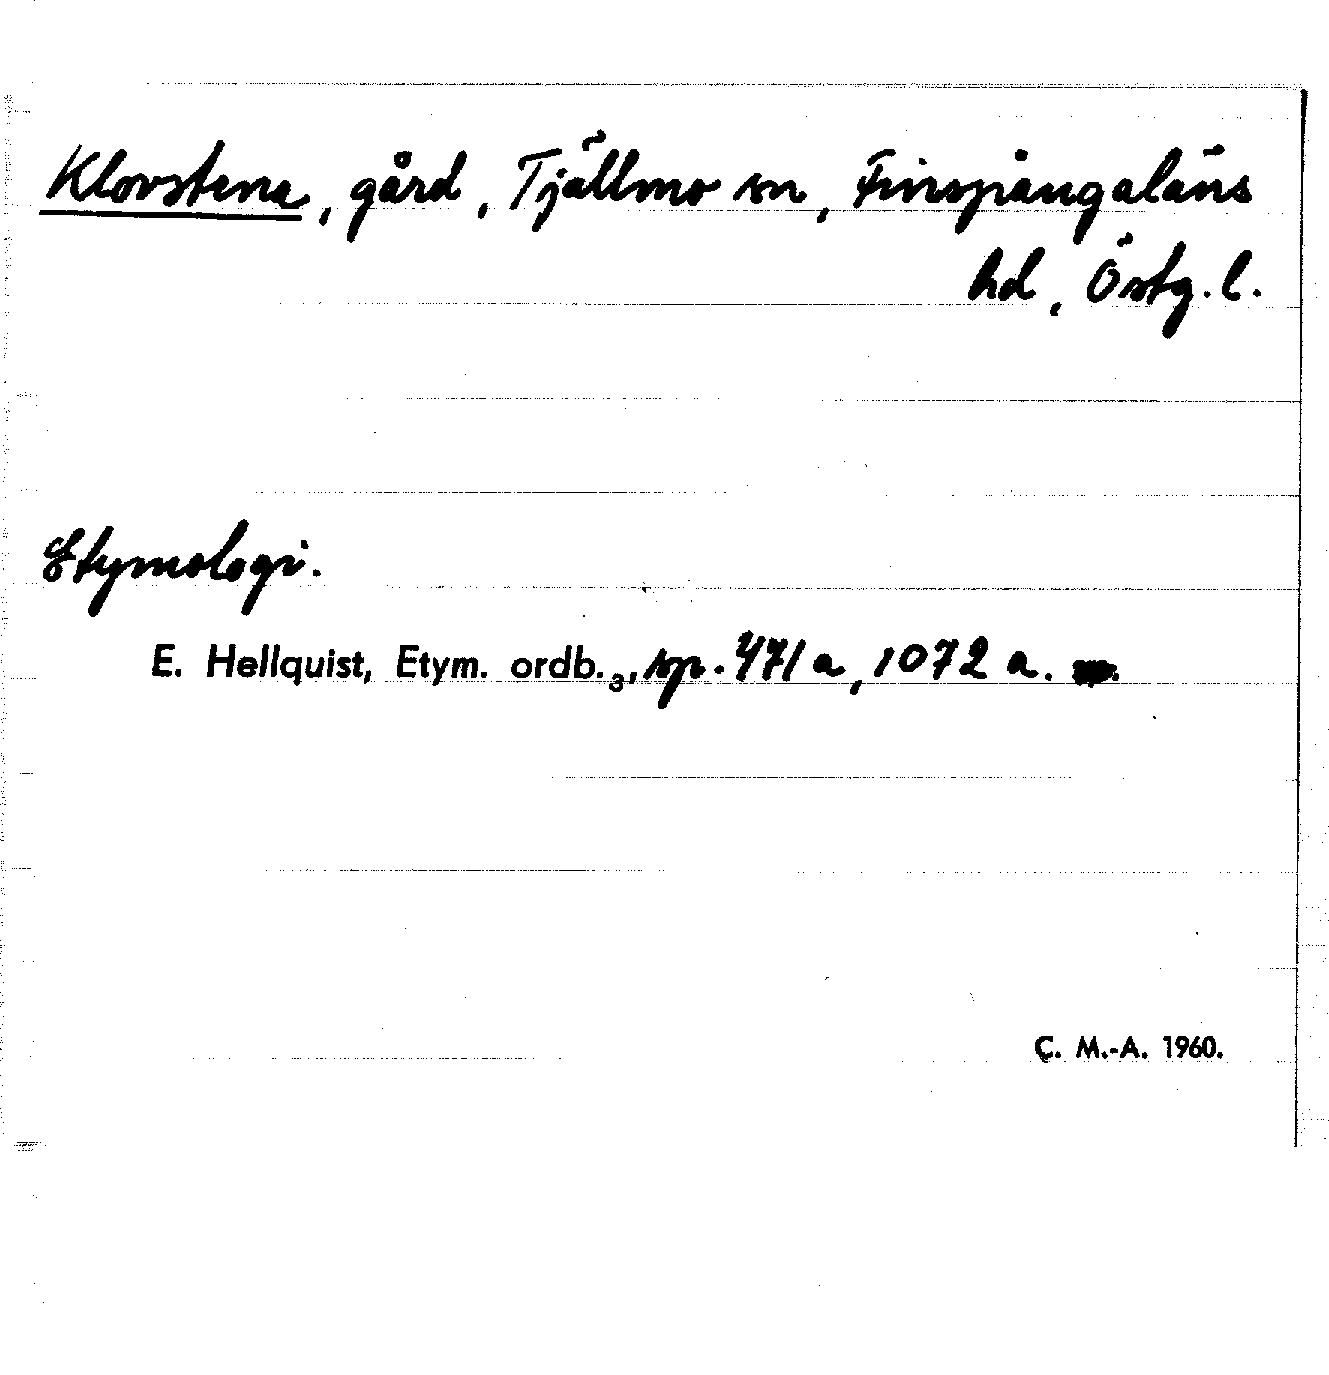 Klovstena, gård, Tjällmo sn, Finspångaläns
hd, Östg. l.
Etymologi.
E. Hellquist, Etym. ordb.3, sp. 471 a, 1072 a.
C. M.-A. 1960.